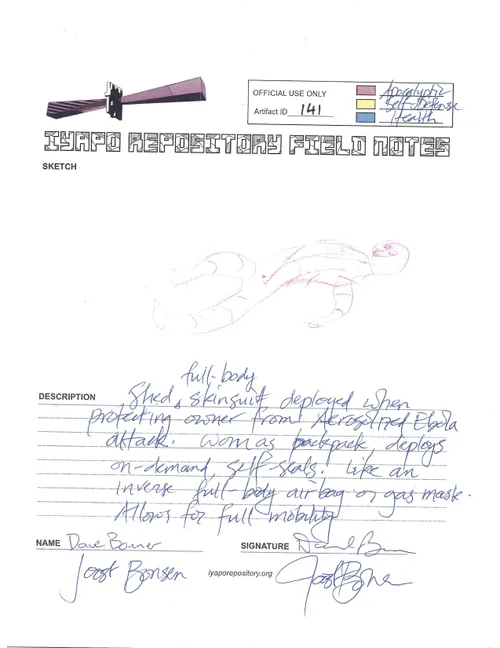 OFFICIAL USE ONLY
Artifact ID 141
Apocalyptic
Self-Defense
Health
IYAPO REPOSITORY FIELD NOTES
SKETCH
full-body
DESCRIPTION Shed, skinsuit deployed when
protecting owner from Aerosolized Ebola
attack. Worn as backpack, deploys
on-demand, self-seals. Like an
inverse full-body airbag or gas mask.
Allows for full mobility
NAME Dave Bonner SIGNATURE
Joost Bonsen iyaporepository.org